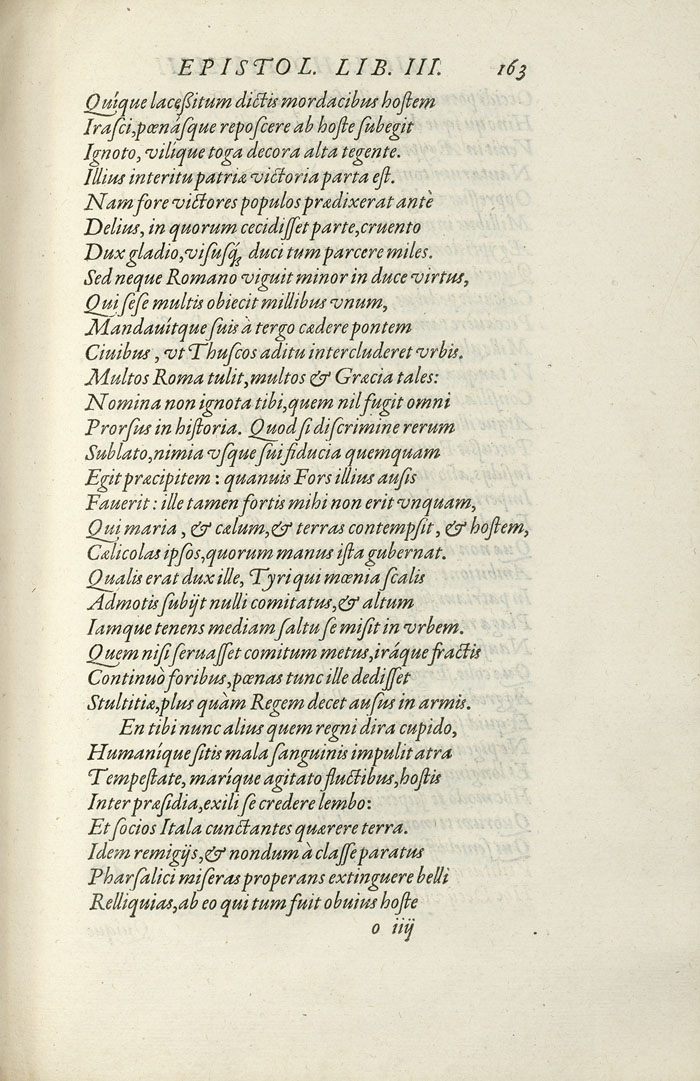 EPISTOL. LIB. III. 163
Quíque lacęßitum dictis mordacibus hoſtem
Iraſci, pœnáſque repoſcere ab hoſte ſubegit
Ignoto, vilíque toga decora alta tegente.
Illius interitu patriæ victoria parta eſt.
Nam fore victores populos prædixerat antè
Delius, in quorum cecidiſſet parte, cruento
Dux gladio, viſuſq́ꝫ duci tum parcere miles.
Sed neque Romano viguit minor in duce virtus,
Qui ſeſe multis obiecit millibus vnum,
Mandauítque ſuis à tergo cædere pontem
Ciuibus, vt Thuſcos aditu intercluderet vrbis.
Multos Roma tulit, multos & Græcia tales:
Nomina non ignota tibi, quem nil fugit omni
Prorſus in hiſtoria. Quod ſi diſcrimine rerum
Sublato, nimia vſque ſui fiducia quemquam
Egit præcipitem: quanuis Fors illius auſis
Fauerit: ille tamen fortis mihi non erit vnquam,
Qui maria, & cælum, & terras contempſit, & hoſtem,
Cælicolas ipſos, quorum manus iſta gubernat.
Qualis erat dux ille, Tyri qui mœnia ſcalis
Admotis ſubijt nulli comitatus, & altum
Iamque tenens mediam ſaltu ſe miſit in vrbem.
Quem niſi ſeruaſſet comitum metus, iráque fractis
Continuò foribus, pœnas tunc ille dediſſet
Stultitiæ, plus quàm Regem decet auſus in armis.
En tibi nunc alius quem regni dira cupido,
Humaníque ſitis mala ſanguinis impulit atra
Tempeſtate, maríque agitato fluctibus, hoſtis
Inter præſidia, exili ſe credere lembo:
Et ſocios Itala cunctantes quærere terra.
Idem remigijs, & nondum à claſſe paratus
Pharſalici miſeras properans extinguere belli
Relliquias, ab eo qui tum fuit obuius hoſte
o iiij